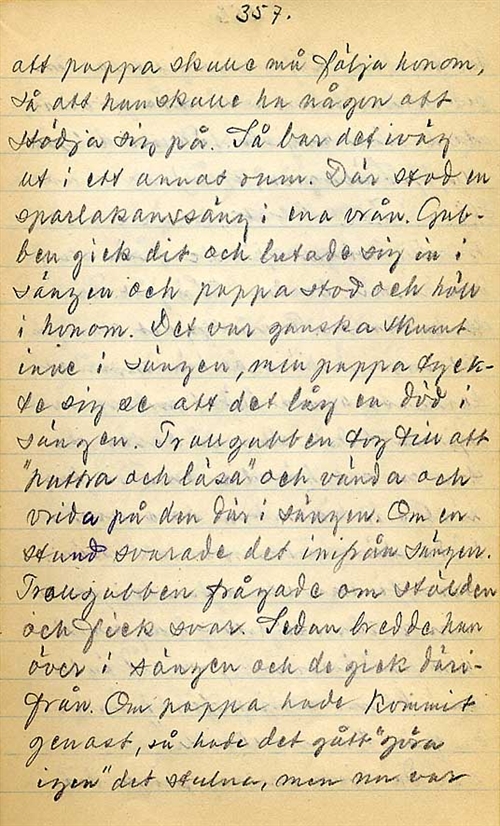 357.
att pappa skulle må följa honom,
så att han skulle ha någon att
stödja sig på. Så bar det iväg
ut i ett annat rum. Där stod en
sparlakanssäng i ena vrån. Gub-
ben gick dit och lutade sig in i
sängen och pappa stod och höll
i honom. Det var ganska skumt
inne i sängen, men pappa tyck-
te sig se att det låg en död i
sängen. Trollgubben tog till att
"puttra och läsa" och vända och
vrida på den där i sängen. Om en
stund svarade det inifrån sängen.
Trollgubben frågade om stölden
och fick svar. Sedan bredde han
över i sängen och de gick däri-
från. Om pappa hade kommit
genast, så hade det gått "göra
igen" det stulna, men nu var